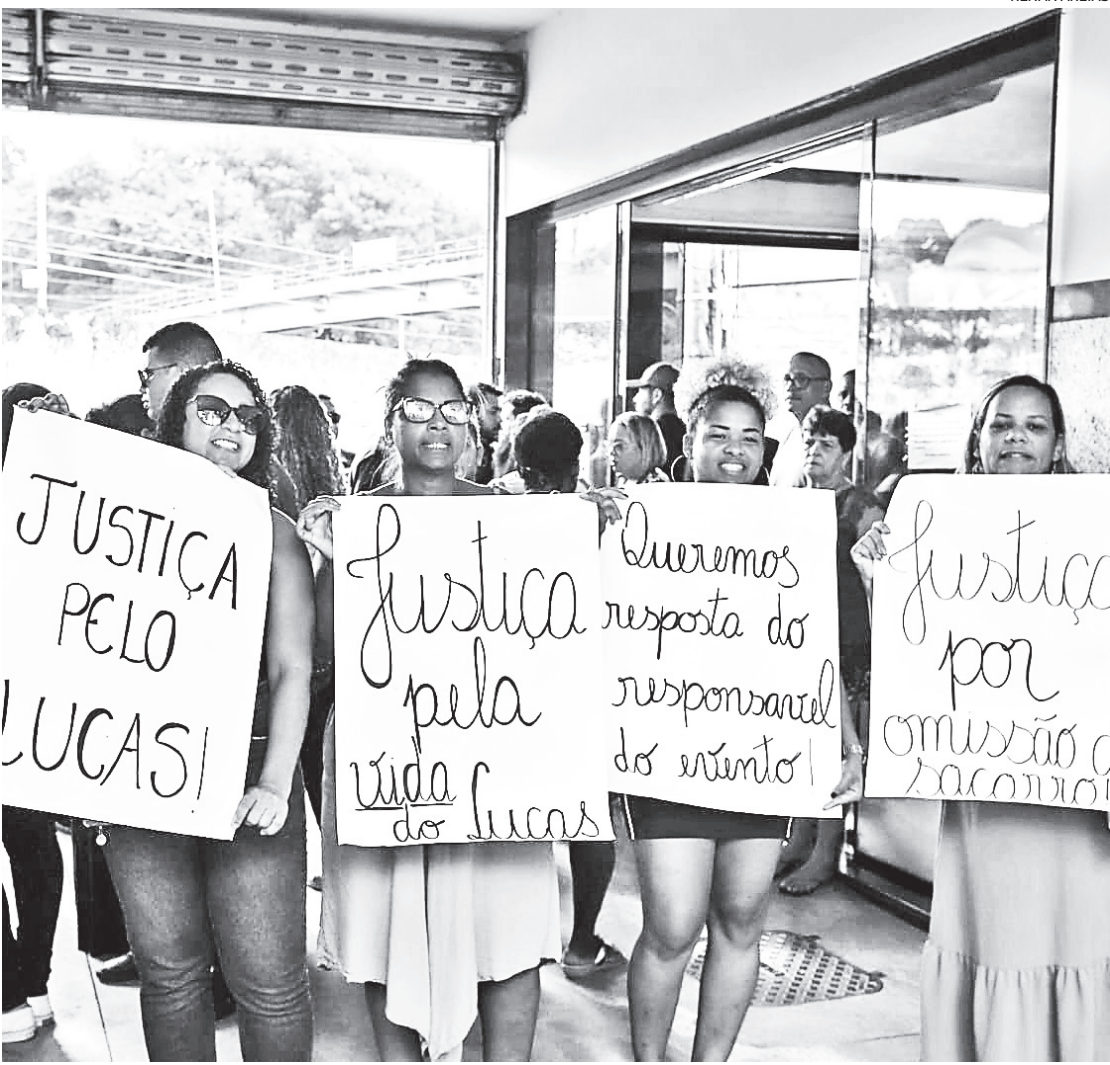 JUSTIÇA
PELO
LUCAS!
Justiça
pela
vida
do Lucas
Queremos
resposta do
responsavel
do evento!
Justiça
por
omissão
sacorro!